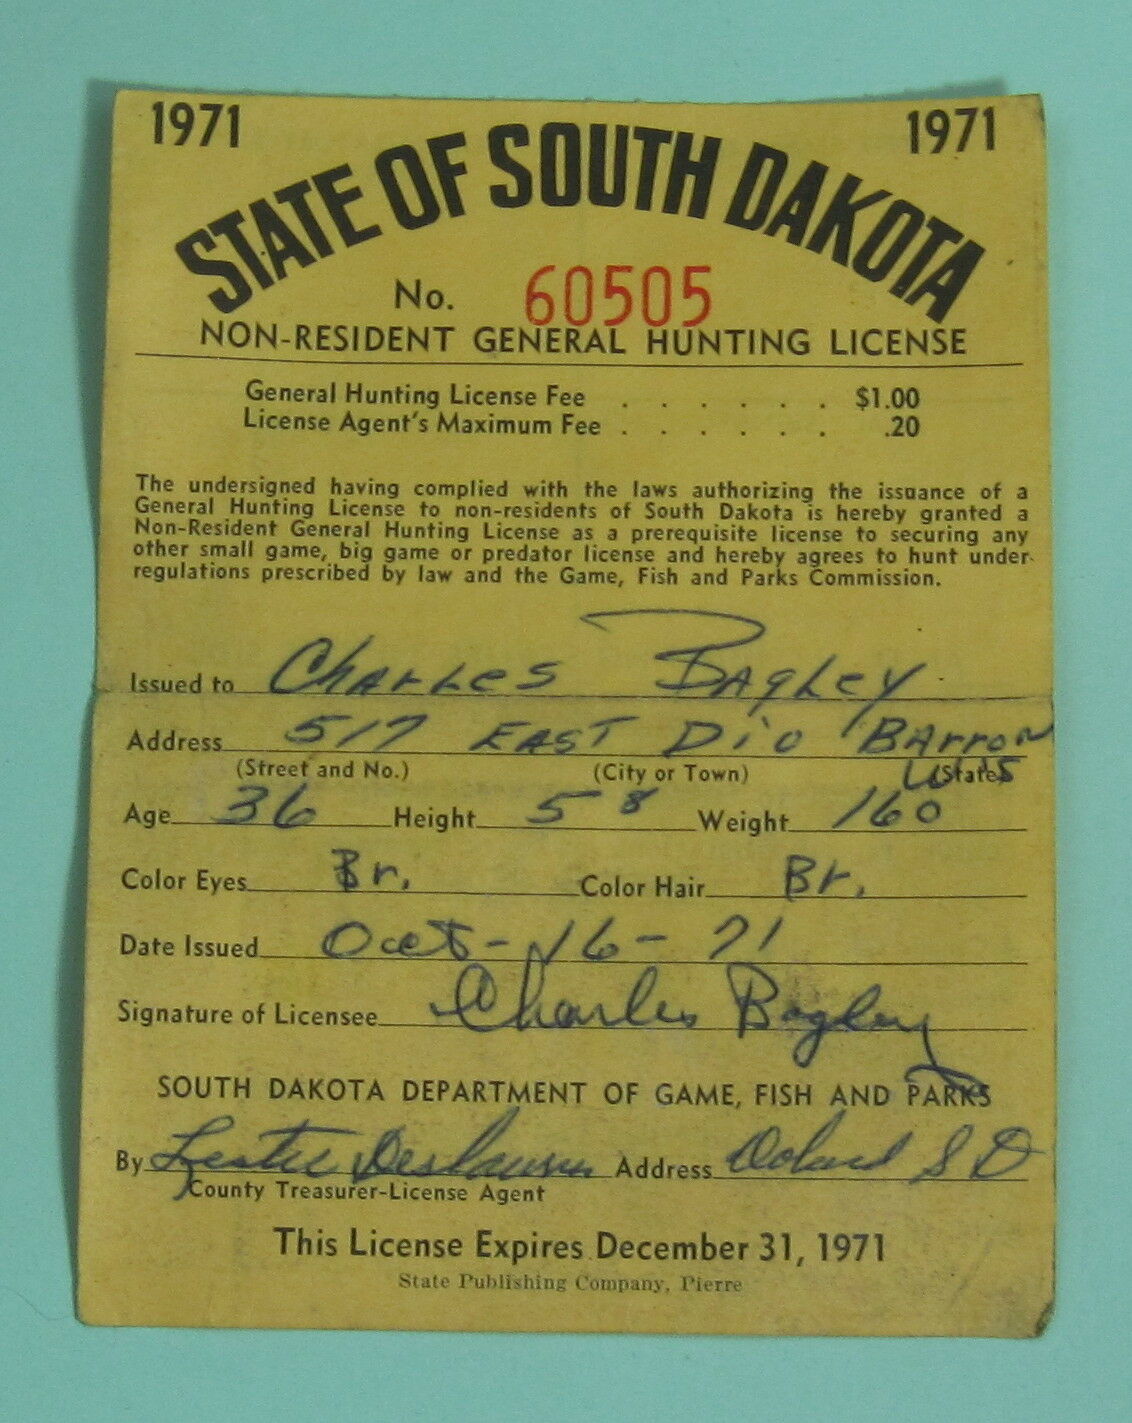 1971 1971
STATE OF SOUTH DAKOTA
No. 60505
NON-RESIDENT GENERAL HUNTING LICENSE
General Hunting License Fee . . . . . . $1.00
License Agent's Maximum Fee . . . . . . .20
The undersigned having complied with the laws authorizing the issuance of a
General Hunting License to non-residents of South Dakota is hereby granted a
Non-Resident General Hunting License as a prerequisite license to securing any
other small game, big game or predator license and hereby agrees to hunt under
regulations prescribed by law and the Game, Fish and Parks Commission.
Issued to Charles Bagley
Address 517 EAST Barron
(Street and No.) (City or Town) (State) Wis
Age 36 Height 5 8 Weight 160
Color Eyes Br. Color Hair Br.
Date Issued Oct-16-71
Signature of Licensee Charles Bagley
SOUTH DAKOTA DEPARTMENT OF GAME, FISH AND PARKS
By Address S D
County Treasurer-License Agent
This License Expires December 31, 1971
State Publishing Company, Pierre